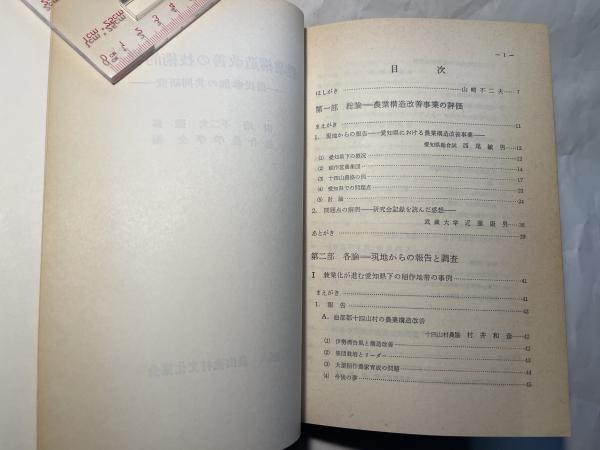 — 1 —
目次
はしがき 山崎不二夫 7
第一部 総論——農業構造改善事業の評価
まえがき 11
1. 現地からの報告——愛知県における農業構造改善事業——
愛知県総合試 西尾敏男 12
(1) 愛知県下の概況 12
(2) 稲作営農集団
(3) 十四山農協の例 17
(4) 愛知県での問題点
(5) 討論 24
2. 問題点の解明——研究会記録を読んだ感想——
武蔵大学 近藤康男 36
あとがき 39
第二部 各論——現地からの報告と調査
I 兼業化が進む愛知県下の稲作地帯の事例 41
まえがき 41
1. 報告
A. 海部郡十四山村の農業構造改善
十四山村農協 村井和 42
(1) 伊勢湾台風と構造改善 42
(2) 集団栽培とリーダー
(3) 大型稲作農家育成の問題
(4) 今後の夢 45